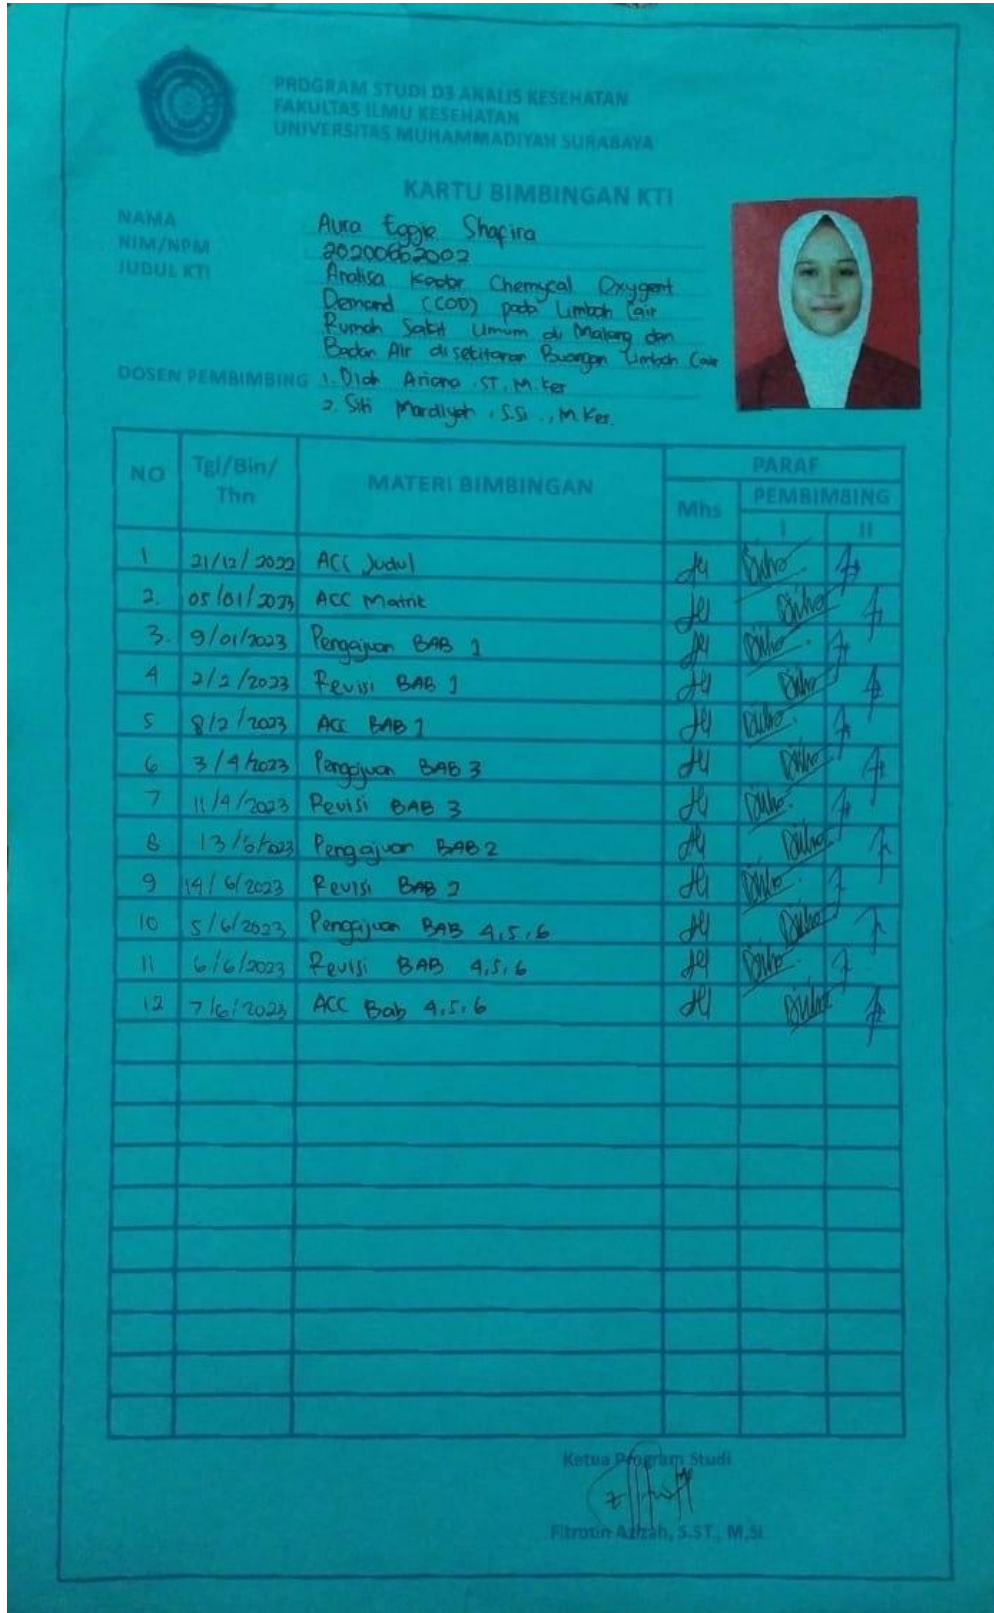 PROGRAM STUDI D3 ANALIS KESEHATAN
FAKULTAS ILMU KESEHATAN
UNIVERSITAS MUHAMMADIYAH SURABAYA
KARTU BIMBINGAN KTI
NAMA Aura Eggie Shafira
NIM/NPM 20200662002
JUDUL KTI Analisa Kadar Chemycal Oxygent
Demand (COD) pada Limbah Cair
Rumah Sakit Umum di Malang dan
Badan Air disekitaran Buangan Limbah Cair
DOSEN PEMBIMBING 1. Diah Ariana .ST, M.Kes
2. Siti Mardiyah , S.Si ., M.Kes.
NO Tgl/Bln/ Thn MATERI BIMBINGAN PARAF
Mhs PEMBIMBING
I II
1 21/12/2022 ACC Judul
2. 05/01/2023 ACC Matrik
3. 9/01/2023 Pengajuan BAB 1
4 2/2/2023 Revisi BAB 1
5 8/2/2023 ACC BAB 1
6 3/4/2023 Pengajuan BAB 3
7 11/4/2023 Revisi BAB 3
8 Pengajuan BAB 2
9 14/6/2023 Revisi BAB 2
10 5/6/2023 Pengajuan BAB 4,5,6
11 6/6/2023 Revisi BAB 4,5,6
12 7/6/2023 ACC Bab 4,5,6
Ketua Program Studi
Fitrotin Azizah, S.ST., M,Si